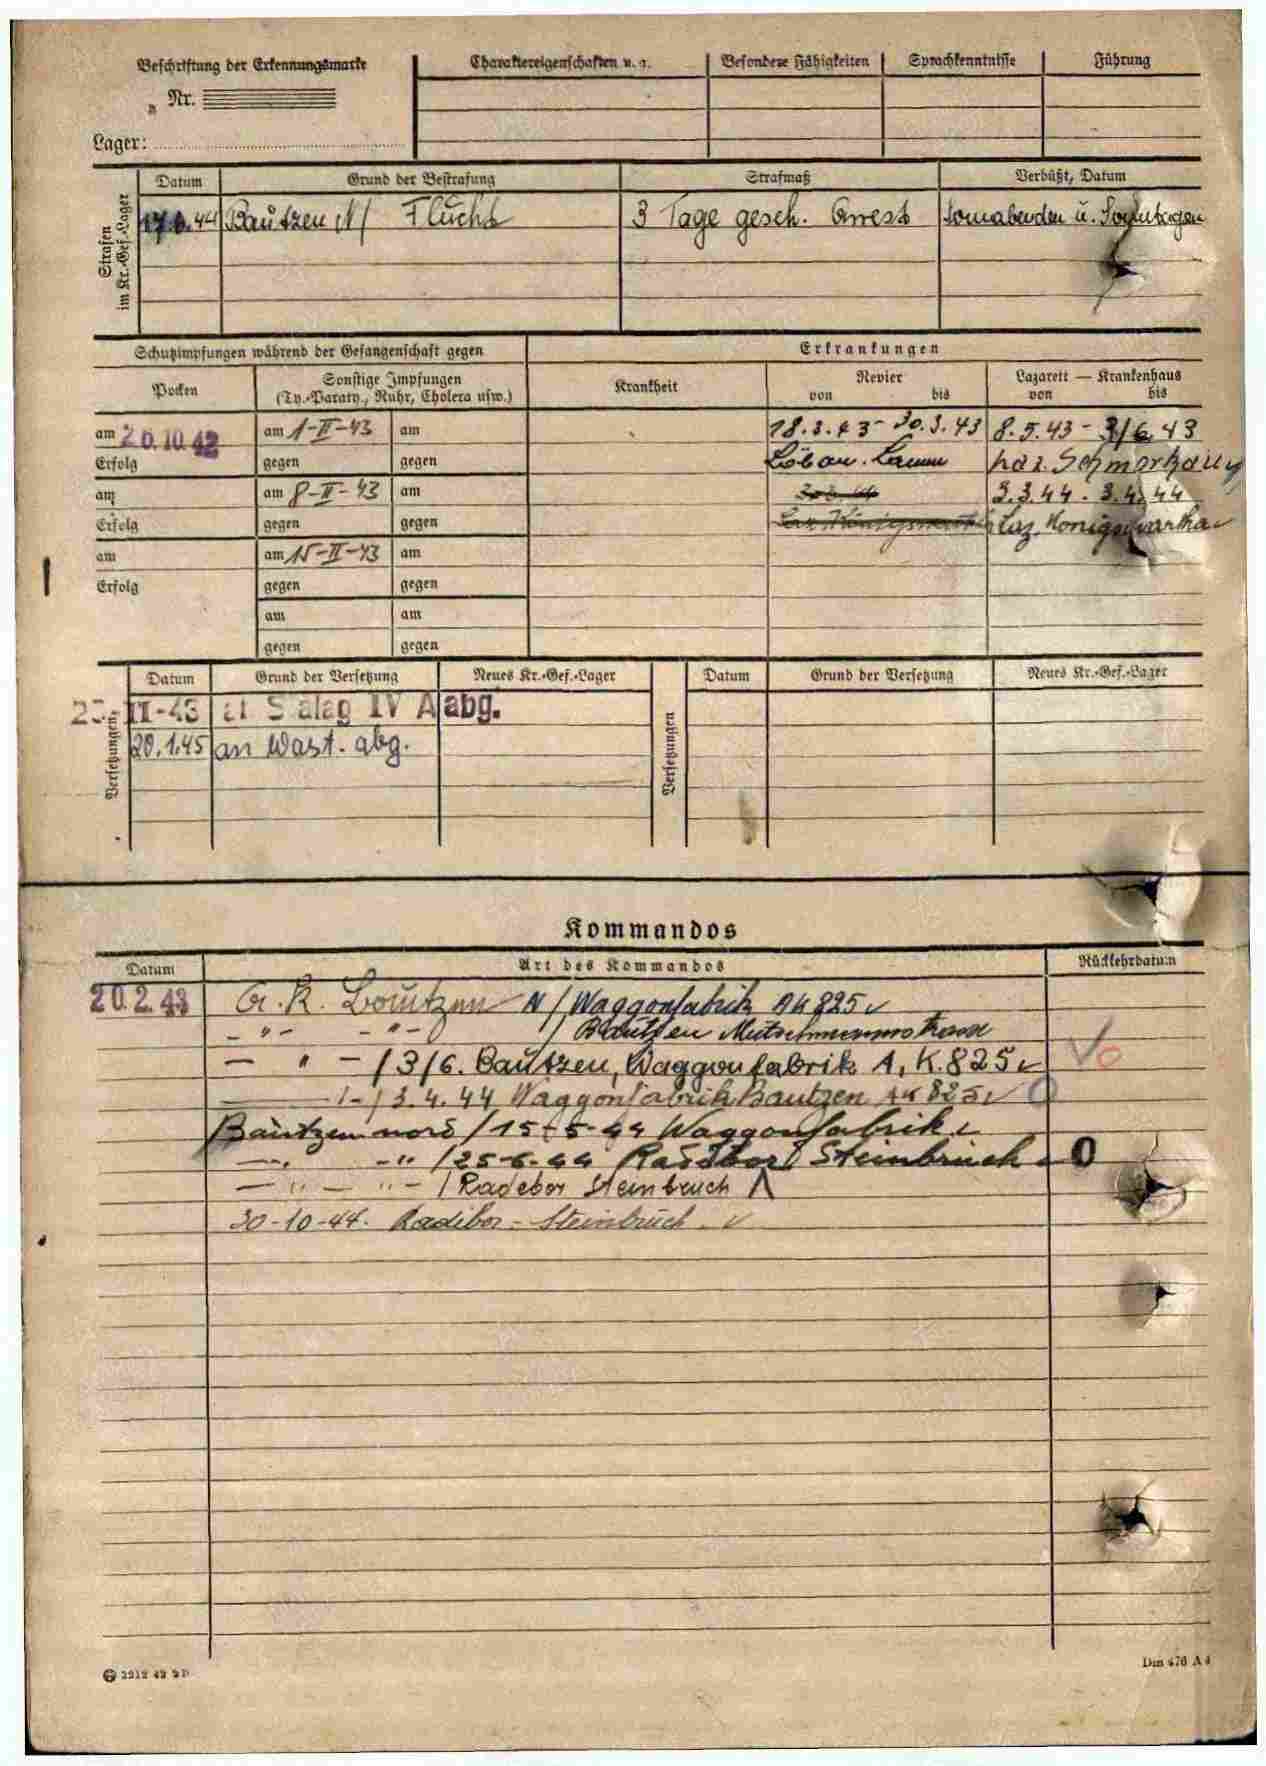 Beschriftung der Erkennungsmarke
Nr.
Lager:
Charaktereigenschaften u. a. Besondere Fähigkeiten Sprachkenntnisse Führung
Strafen im Kr.-Gef.-Lager
Datum Grund der Bestrafung Strafmaß Verbüßt, Datum
17.6.44 Bautzen N/ Flucht 3 Tage gesch. Arrest Sonnabenden u. Sonntagen
Schutzimpfungen während der Gefangenschaft gegen Erkrankungen
Pocken Sonstige Impfungen (Ty.-Paraty., Ruhr, Cholera usw.) Krankheit Revier von bis Lazarett — Krankenhaus von bis
am 26.10.42 am 1-II-43 am 18.3.43 - 30.3.43 8.5.43 - 3/6.43
Erfolg gegen gegen Löbau. Laz. Schmorkau
am am 8-II-43 am 3.3.44 - 3.4.44
Erfolg gegen gegen Laz. Königswartha
am am 15-II-43 am
Erfolg gegen gegen
am am
gegen gegen
Versetzungen
Datum Grund der Versetzung Neues Kr.-Gef.-Lager
II-43 Stalag IV A abg.
20.1.45 an Wast. abg.
Versetzungen
Datum Grund der Versetzung Neues Kr.-Gef.-Lager
Kommandos
Datum Art des Kommandos Rückkehrdatum
20.2.43 A. K. Bautzen N/ Waggonfabrik AK 825
-"- -"- / Bautzen
- " - / 3/6. Bautzen, Waggonfabrik A. K. 825
/ 3.4.44 Waggonfabrik Bautzen AK 825 O
Bautzen nord / 15-5-44 Waggonfabrik
-"- -"- / 25-6-44 Radibor Steinbruch O
-"- -"- / Radebor Steinbruch
30-10-44. Radibor - Steinbruch
2212 42 2D
Din 476 A 4